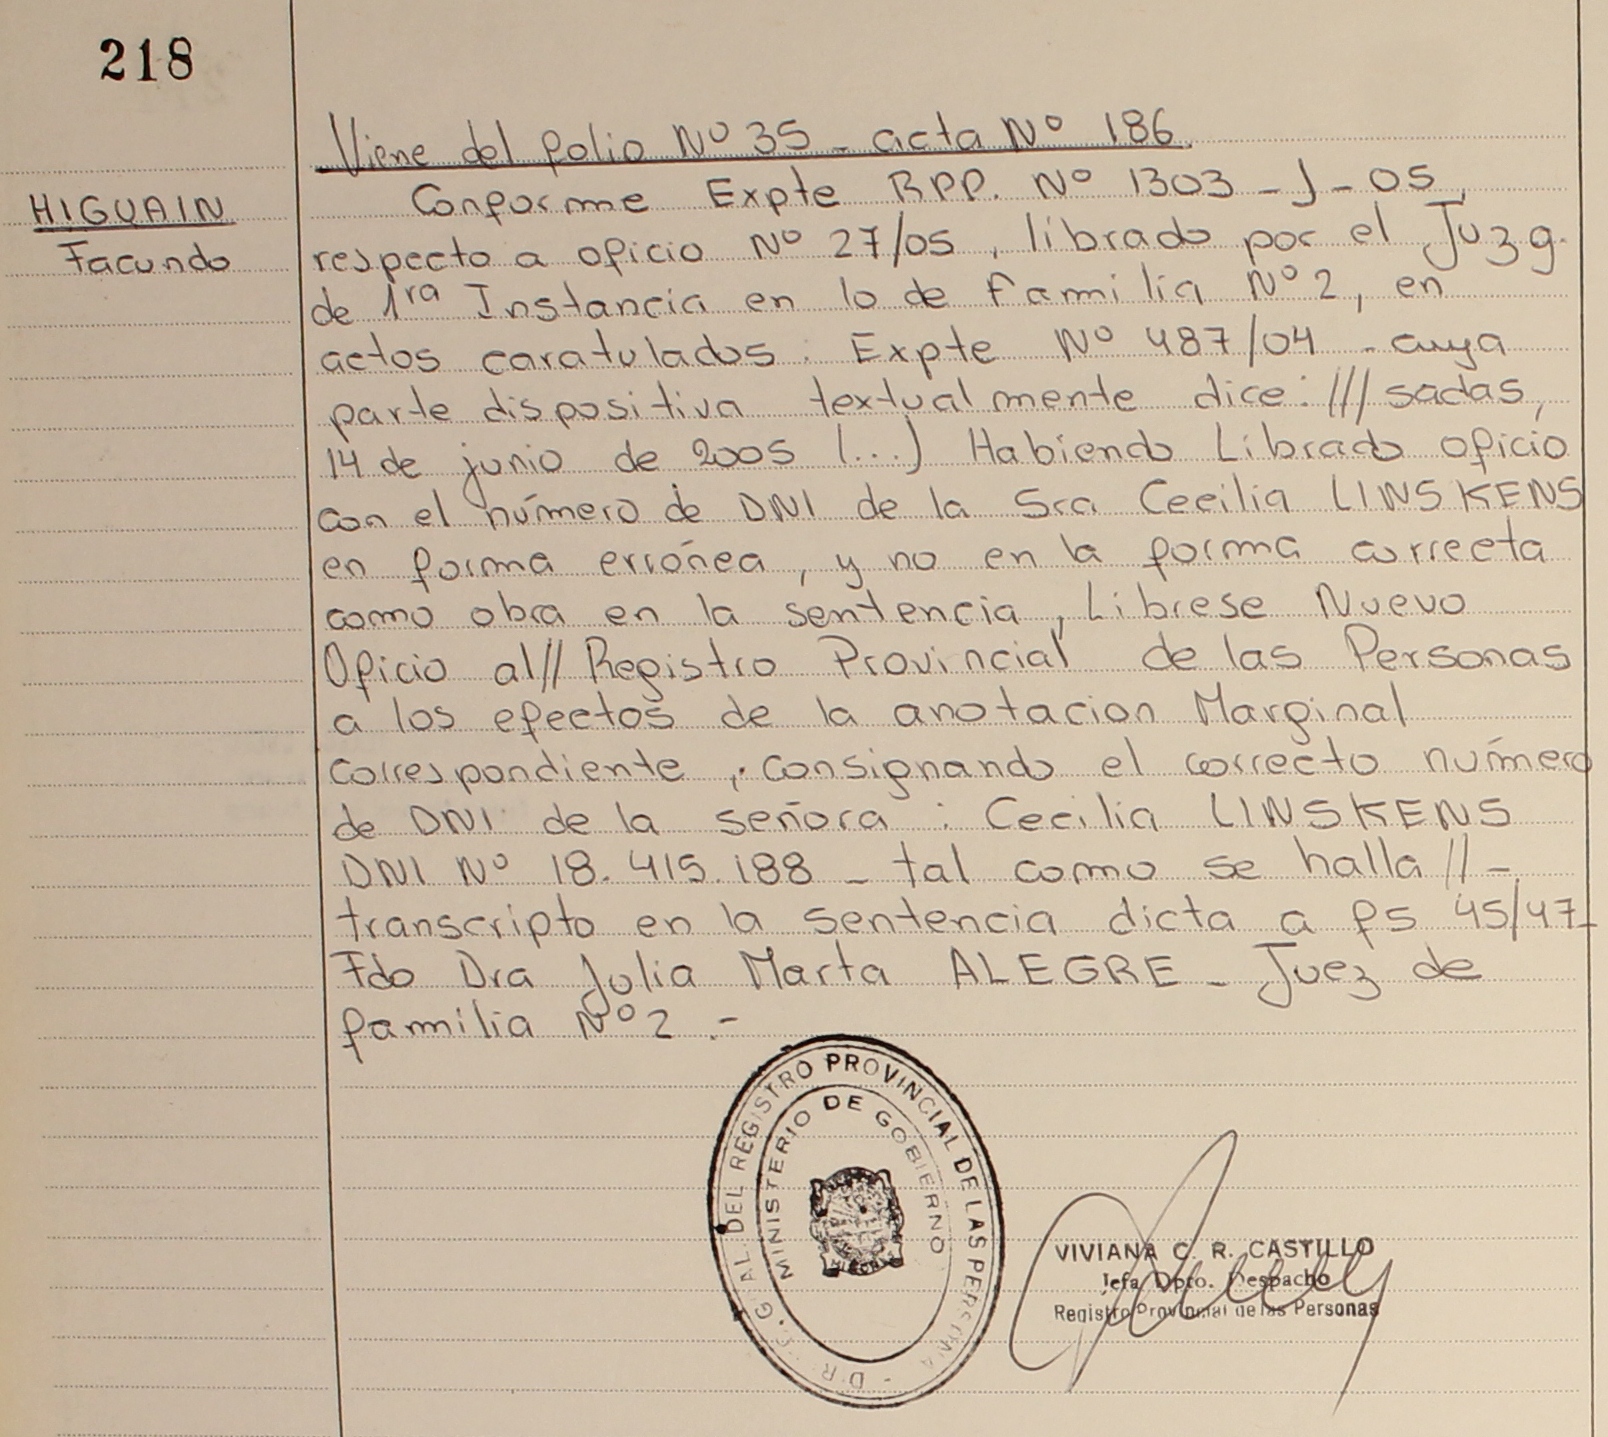 218
Viene del folio Nº 35 - acta Nº 186.
HIGUAIN
Facundo
Conforme Expte RPP. Nº 1303 - J - 05,
respecto a oficio Nº 27/05, librado por el Juzg.
de 1ra Instancia en lo de familia Nº 2, en
actos caratulados: Expte Nº 487/04 - cuya
parte dispositiva textualmente dice: /// sadas,
14 de junio de 2005 (...) Habiendo Librado oficio
con el número de DNI de la Sra Cecilia LINSKENS
en forma errónea, y no en la forma correcta
como obra en la sentencia, Librese Nuevo
Oficio al// Registro Provincial de las Personas
a los efectos de la anotacion Marginal
correspondiente, consignando el correcto número
de DNI de la señora: Cecilia LINSKENS
DNI Nº 18.415.188 - tal como se halla // -
transcripto en la sentencia dicta a fs 45/47-
Fdo Dra Julia Marta ALEGRE - Juez de
familia Nº 2 .-
GRAL. DEL REGISTRO PROVINCIAL DE LAS PERSONAS
MINISTERIO DE GOBIERNO
VIVIANA C. R. CASTILLO
Jefa Dpto. Despacho
Registro Provincial de las Personas